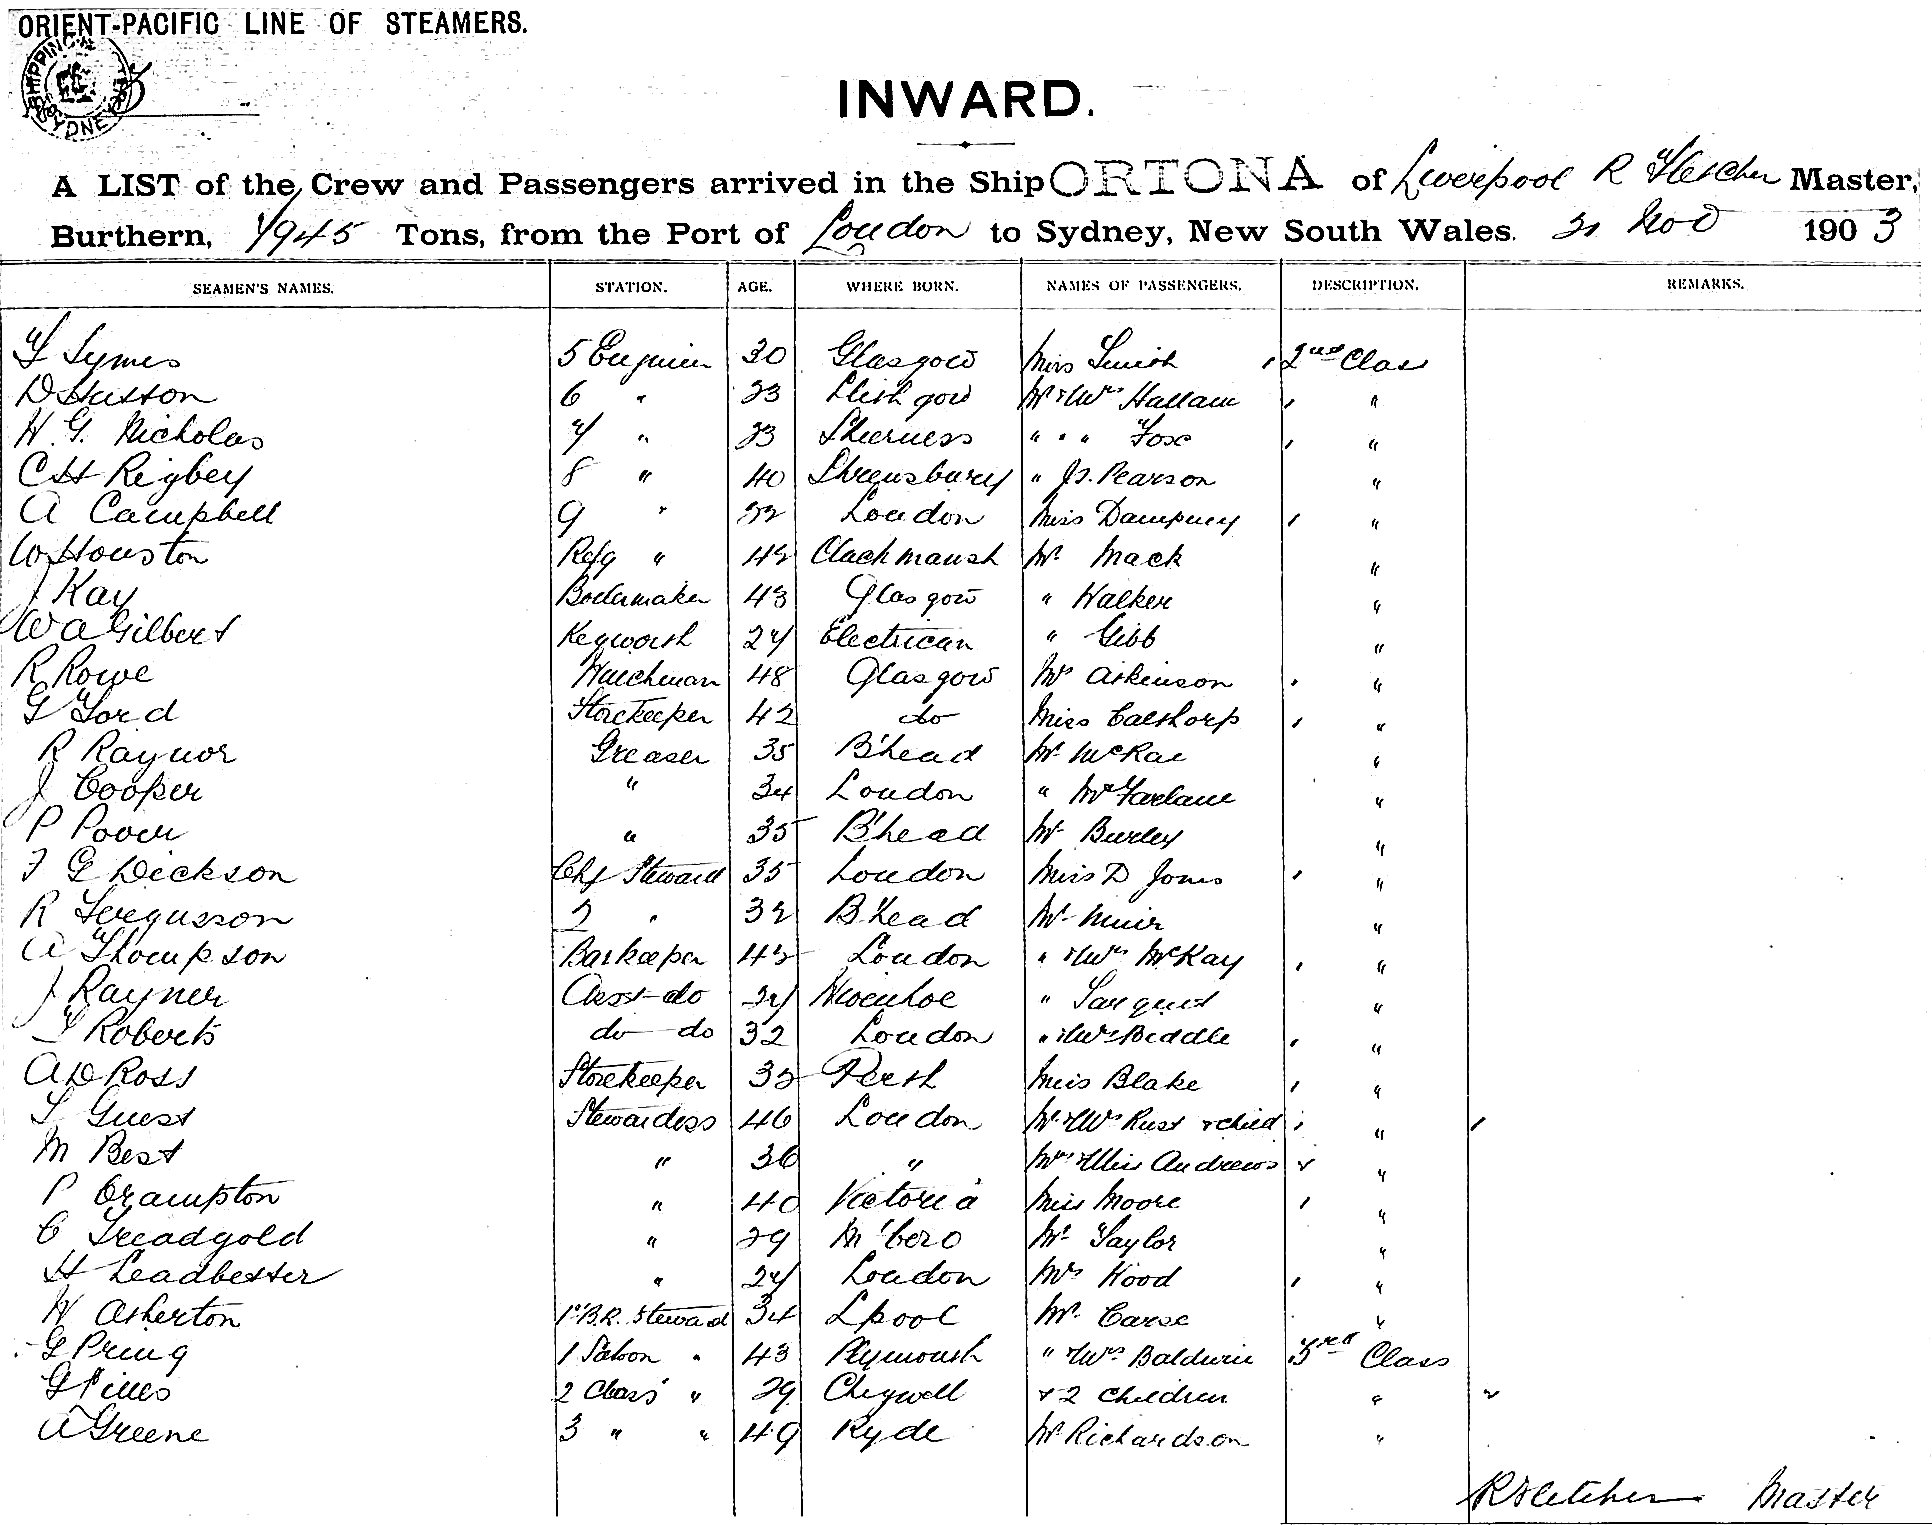 ORIENT-PACIFIC LINE OF STEAMERS.
SHIPPING SYDNEY
INWARD.
A LIST of the Crew and Passengers arrived in the Ship ORTONA of Liverpool R Fletcher Master,
Burthern, 7945 Tons, from the Port of London to Sydney, New South Wales. Nov 1903
SEAMEN'S NAMES. STATION. AGE. WHERE BORN. NAMES OF PASSENGERS. DESCRIPTION. REMARKS.
Symes 5 Engineer 30 Glasgow Miss Smith 2nd Class
D Husson 6 " 23 Mr & Mrs Hallam "
H. G. Nicholas 7 " 23 Sheerness " " " Fox "
C H Rigbey 8 " 40 Shrewsbury " Js. Pearson "
A Campbell 9 " 22 London Miss Dampney "
W Houston Refg " 42 Mr Mack "
J Kay Boilermaker 43 Glasgow " Walker "
W A Gilbert Kegworth 27 Electrican " Gibb "
R Rowe Watchman 48 Glasgow Mrs Atkinson "
G Ford Storekeeper 42 do Miss Calthorp "
R Raynor Greaser 35 B'head Mr McRae "
J Cooper " 34 London " McFarlane "
P Power " 35 B'head Mr Burley "
F G Dickson Chf Steward 35 London Miss D Jones "
R Fergusson 2 " 32 B'head Mr Muir "
A Thompson Barkeeper 42 London " & Mrs McKay "
J Rayner Asst do 27 Wivenhoe " "
Roberts do do 32 London " & Mrs Beddle "
A D Ross Storekeeper 32 Perth Miss Blake "
S Guest Stewardess 46 London Mr & Mrs Rust & child "
M Best " 36 " Mrs & Miss Andrews "
P Crampton " 40 Victoria Miss Moore "
C Treadgold " 29 M'boro Mr Taylor "
H Leadbetter " 27 London Mrs Wood "
W Atherton 1st B.R. Steward 34 Lpool Mr Carse "
G Pring 1 Saloon " 43 Plymouth " & Mrs Baldwin 3rd Class
G Pines 2 Class " 29 Chigwell & 2 Children "
A Greene 3 " " 49 Ryde Mr Richardson "
R Fletcher Master